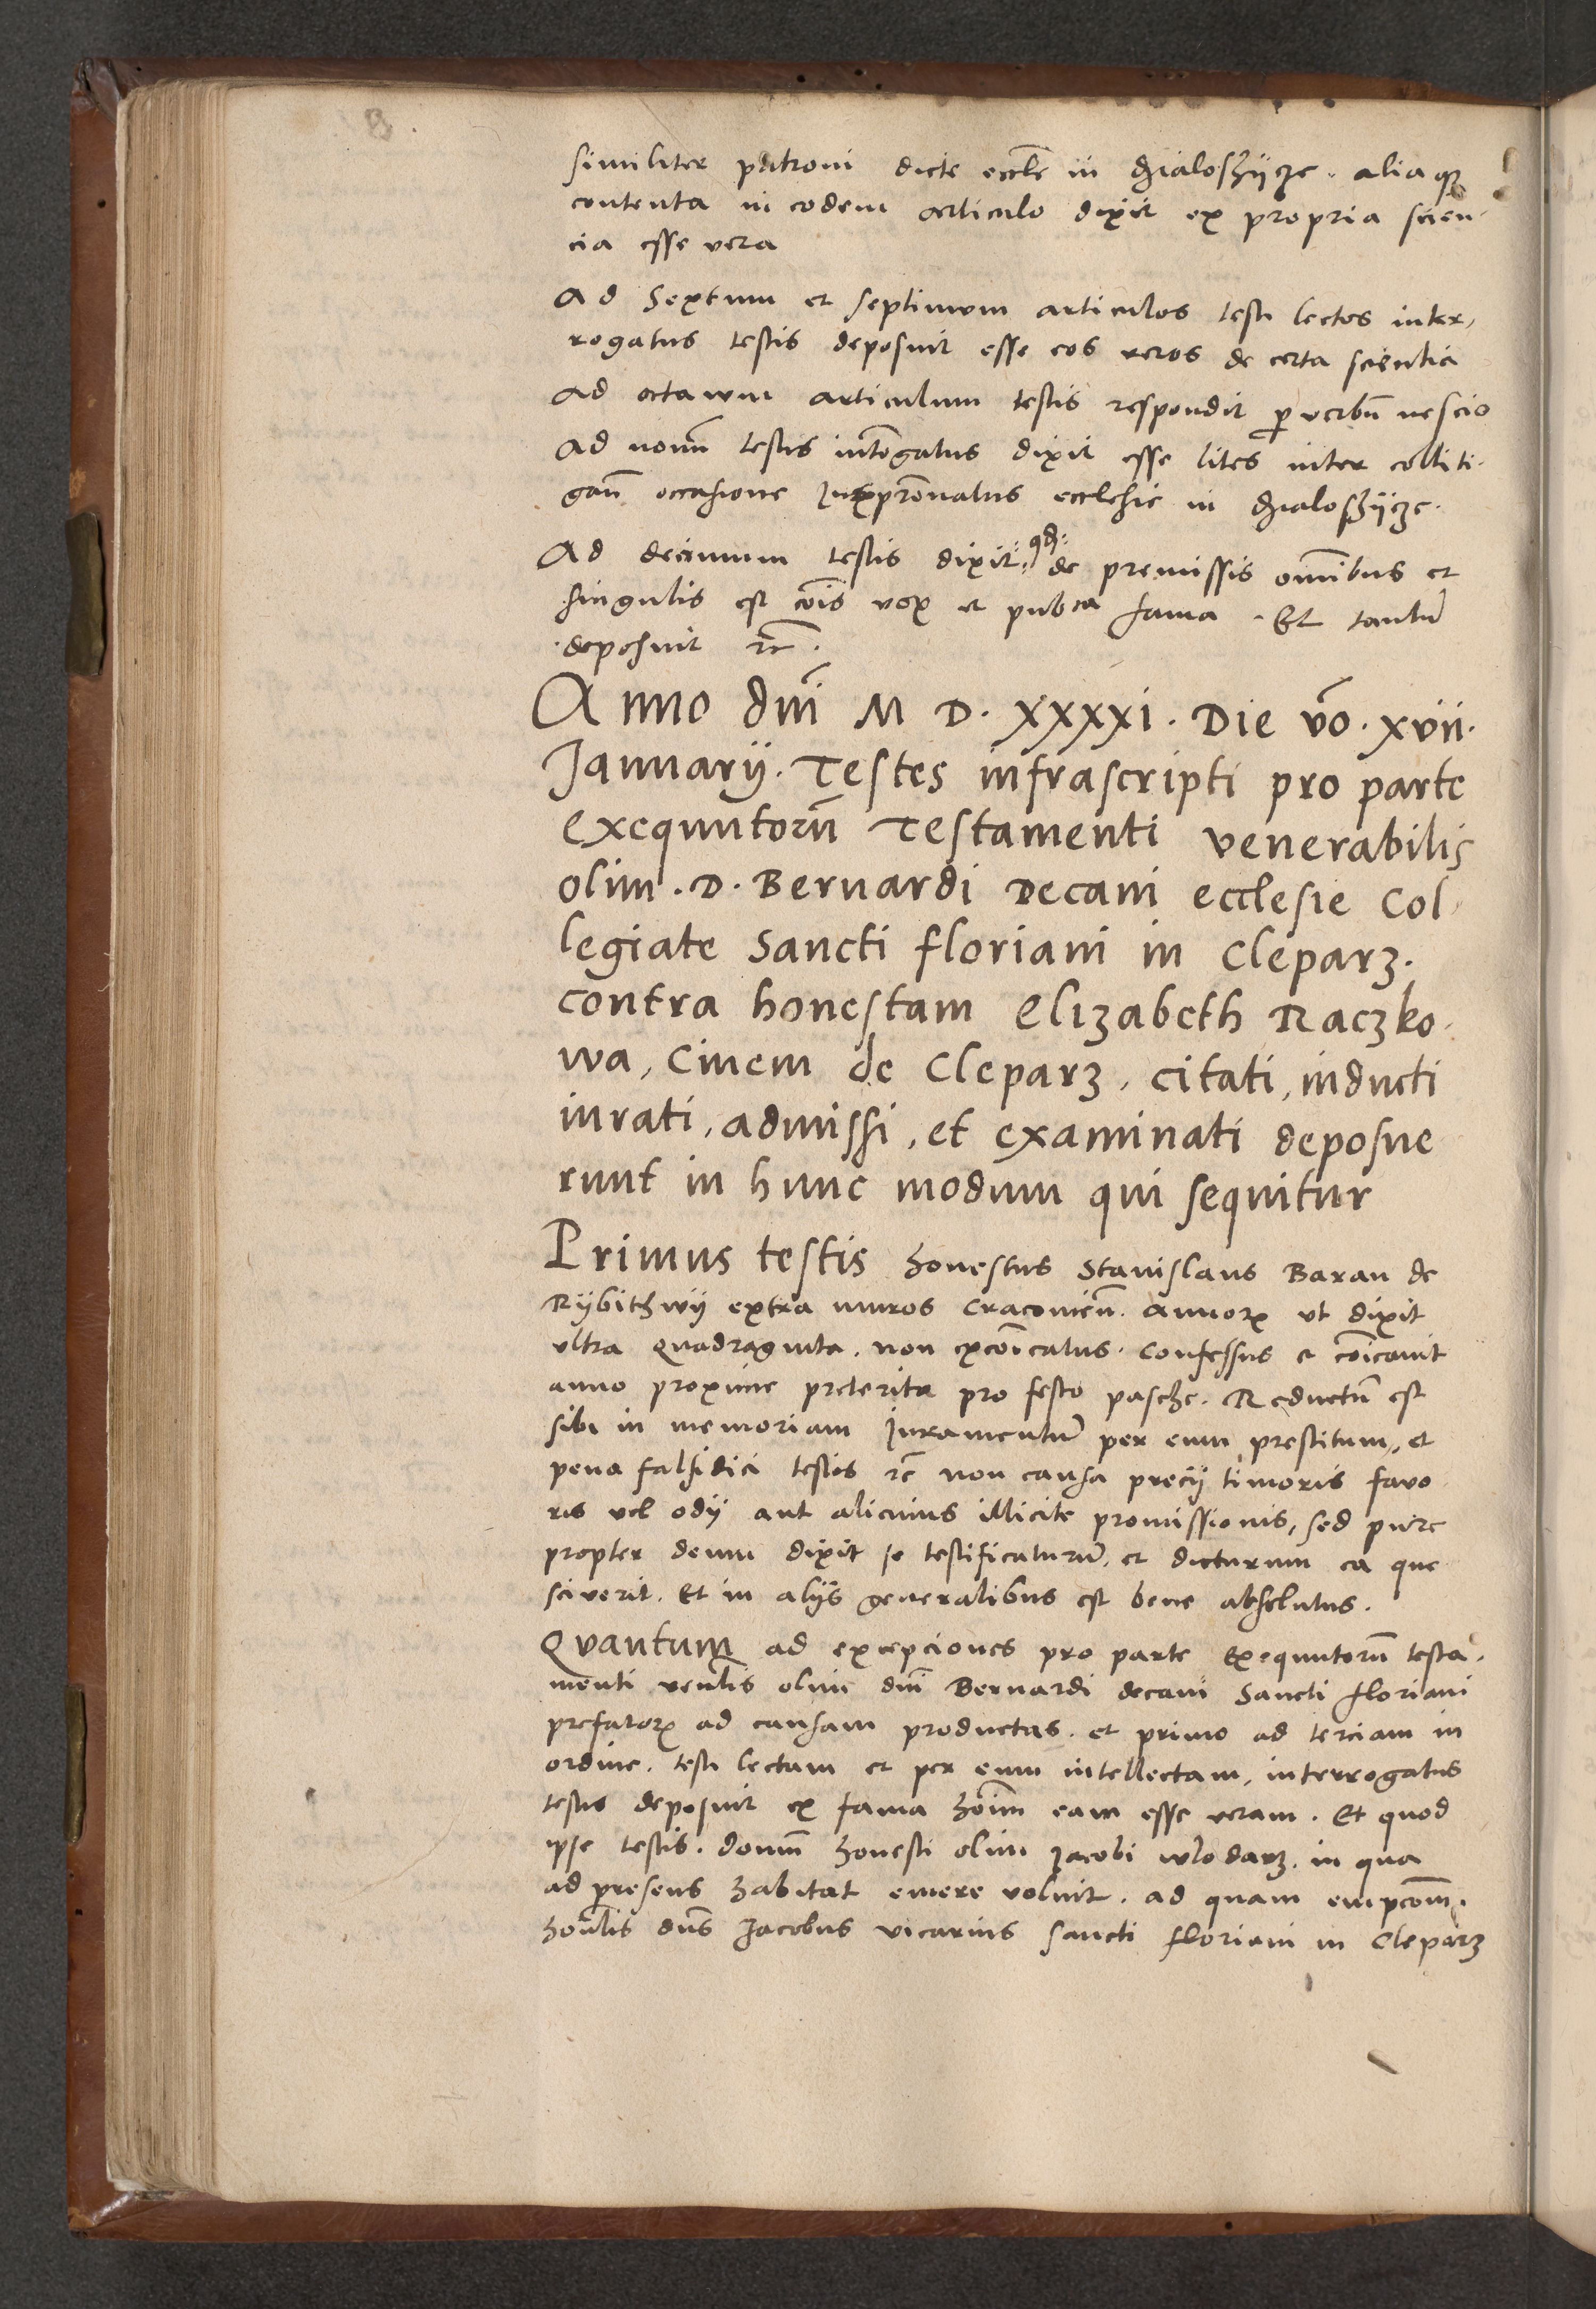 similiter patroni dicte eccl̄e in Dzialoszÿcze. aliaqꝫ
contenta in eodem articulo dixit ex propria scien-
cia esse vera
Ad Sextum et septimum articulos testi lectos inter,
rogatus testis deposuit esse eos veros de certa scientia
Ad octawum articulum testis respondit ꝑ verbū nescio
Ad nonū testis int̄rogatus dixit esse lites inter colliti-
gan̄ occasione Jurispr̄onatus ecclesie in Dzialoszÿcze.
Ad decimum testis dixit: qđ: de premissis om̄ibus et
singulis est cōis vox et pub̄ca fama. Et tantū
deposuit rc̄.
Anno dn̄i M D. XXXXi. Die v̄o. xvii.
Januarÿ. Testes infrascripti pro parte
Exequutorū Testamenti venerabilis
olim. D. Bernardi Decani ecclesie Col-
legiate Sancti floriani in Cleparz.
contra honestam Elizabeth Raczko-
wa, Ciuem de Cleparz, citati, inducti
iurati, admissi, et examinati deposue
runt in hunc modum qui sequitur
Primus testis honestus Stanislaus Baran de
Rÿbithwÿ extra muros Cracouien̄. annoꝝ vt dixit
vltra Quadraginta. non excōicatus. Confessus et cōicauit
anno proxime preterita pro festo pasche. Reductū est
sibi in memoriam Juramentū per eum prestitum, et
pena falsidici testis rc̄ non causa precÿ timoris fauo
ris vel odÿ aut alicuius illicite promissionis, sed pure
propter deum dixit se testificaturū, et dicturum ea que
sciuerit. Et in alÿs generalibus est bene absolutus.
Quantum ad excepciones pro parte Exequutorū testa-
menti ven̄lis olim dn̄i Bernardi decani Sancti floriani
prefatoꝝ ad causam productas. et primo ad terciam in
ordine. testi lectam et per eum intellectam, interrogatus
testis deposuit ex fama hōim̄ eam esse veram. Et quod
ipse testis. domū honesti olim Jacobi wlodarz. in qua
ad presens habitat emere voluit. ad quam empcōem̄.
hon̄lis dn̄s Jacobus vicarius sancti floriani in Cleparz